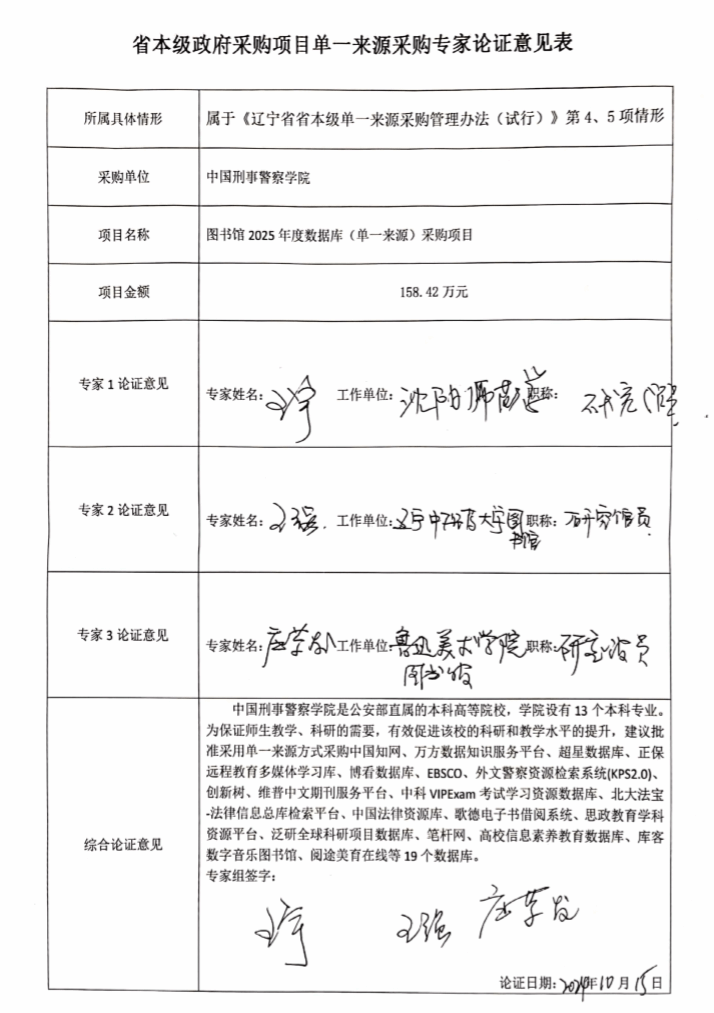 省本级政府采购项目单一来源采购专家论证意见表
所属具体情形
属于《辽宁省省本级单一来源采购管理办法（试行）》第 4、5 项情形
采购单位
中国刑事警察学院
项目名称
图书馆 2025 年度数据库（单一来源）采购项目
项目金额
158.42 万元
专家 1 论证意见
专家姓名：王宇 工作单位：沈阳师范 职称：研究馆员
专家 2 论证意见
专家姓名：王强 工作单位：辽宁中医药大学图 职称：研究馆员
书馆
专家 3 论证意见
专家姓名： 工作单位：鲁迅美术学院 职称：研究馆员
图书馆
综合论证意见
中国刑事警察学院是公安部直属的本科高等院校，学院设有 13 个本科专业。
为保证师生教学、科研的需要，有效促进该校的科研和教学水平的提升，建议批
准采用单一来源方式采购中国知网、万方数据知识服务平台、超星数据库、正保
远程教育多媒体学习库、博看数据库、EBSCO、外文警察资源检索系统(KPS2.0)、
创新树、维普中文期刊服务平台、中科 VIPExam 考试学习资源数据库、北大法宝
-法律信息总库检索平台、中国法律资源库、歌德电子书借阅系统、思政教育学科
资源平台、泛研全球科研项目数据库、笔杆网、高校信息素养教育数据库、库客
数字音乐图书馆、阅途美育在线等 19 个数据库。
专家组签字：
王宇 王强
论证日期：2024年10月15日